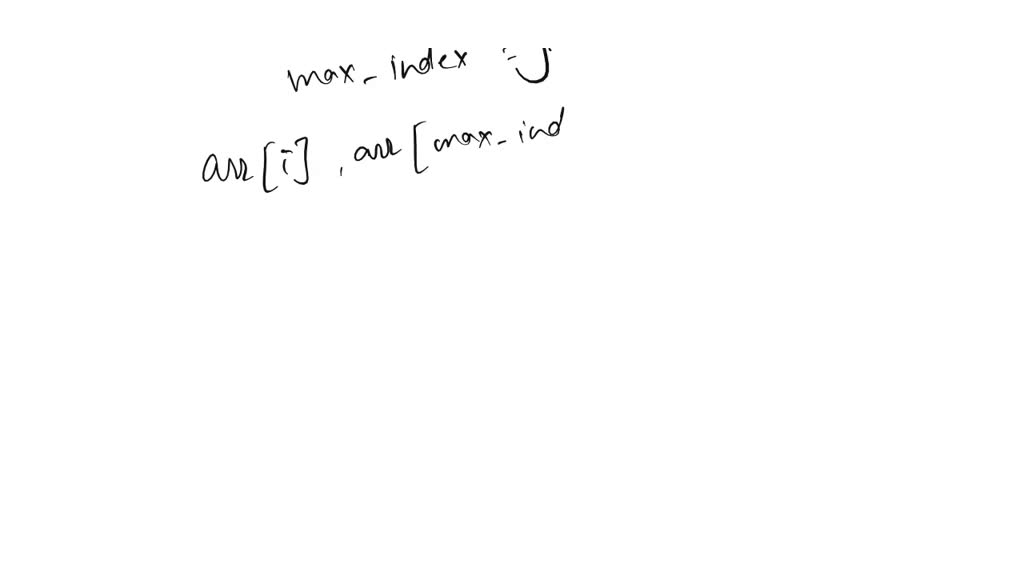 max_index = j
arr[i], arr[max_ind